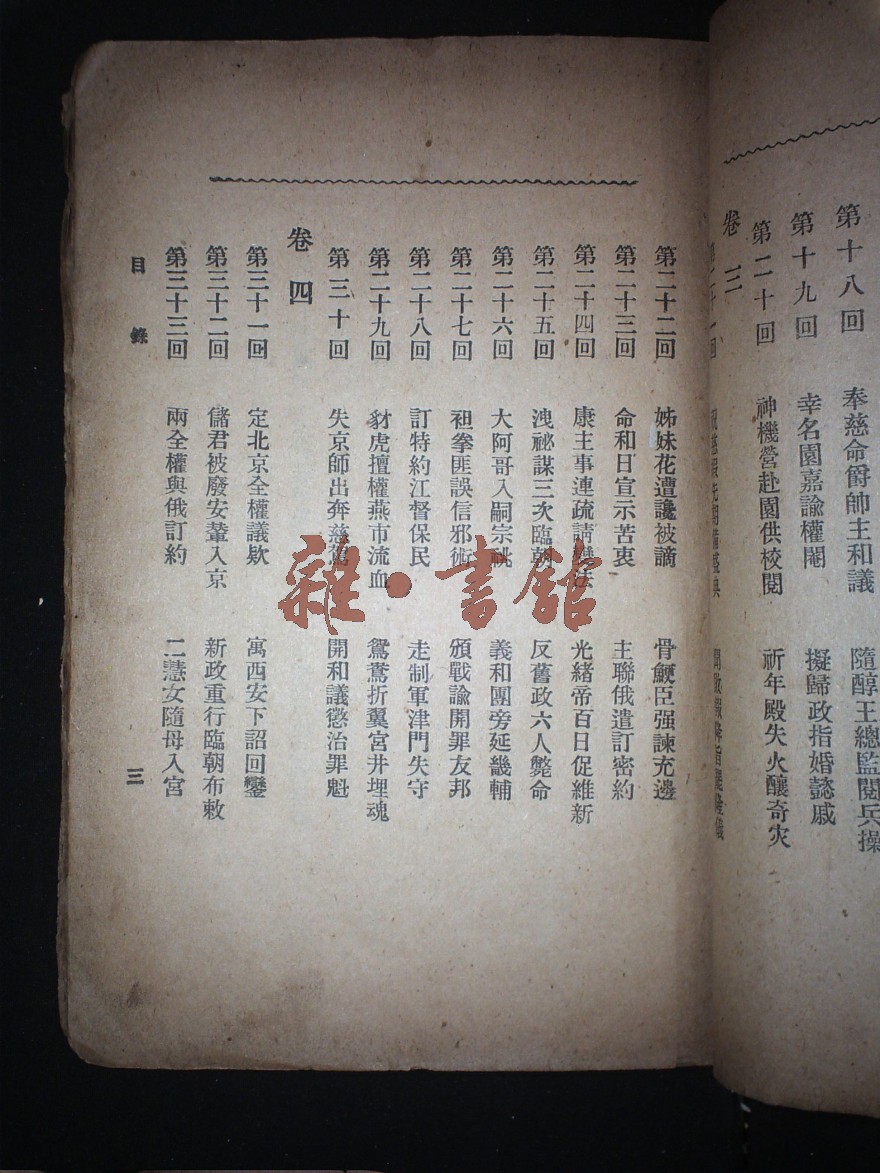 第十八回 奉慈命爵帥主和議 隨醇王總監閱兵操
第十九回 幸名園嘉諭權閹 擬歸政指婚懿戚
第二十回 神機營赴園供校閱 祈年殿失火釀奇灾
卷三
第二十二回 姊妹花遭讒被謫 骨鯁臣强諫充邊
第二十三回 命和日宣示苦衷 主聯俄遣訂密約
第二十四回 康主事連疏請變法 光緒帝百日促維新
第二十五回 洩祕謀三次臨朝 反舊政六人斃命
第二十六回 大阿哥入嗣宗祧 義和團旁延畿輔
第二十七回 袒拳匪誤信邪術 頒戰諭開罪友邦
第二十八回 訂特約江督保民 走制軍津門失守
第二十九回 豺虎擅權燕市流血 鴛鴦折翼宮井埋魂
第三十回 失京師出奔慈駕 開和議懲治罪魁
卷四
第三十一回 定北京全權議欵 寓西安下詔回鑾
第三十二回 儲君被廢安輦入京 新政重行臨朝布敕
第三十三回 兩全權與俄訂約 二慧女隨母入宮
目錄 三
雜·書館